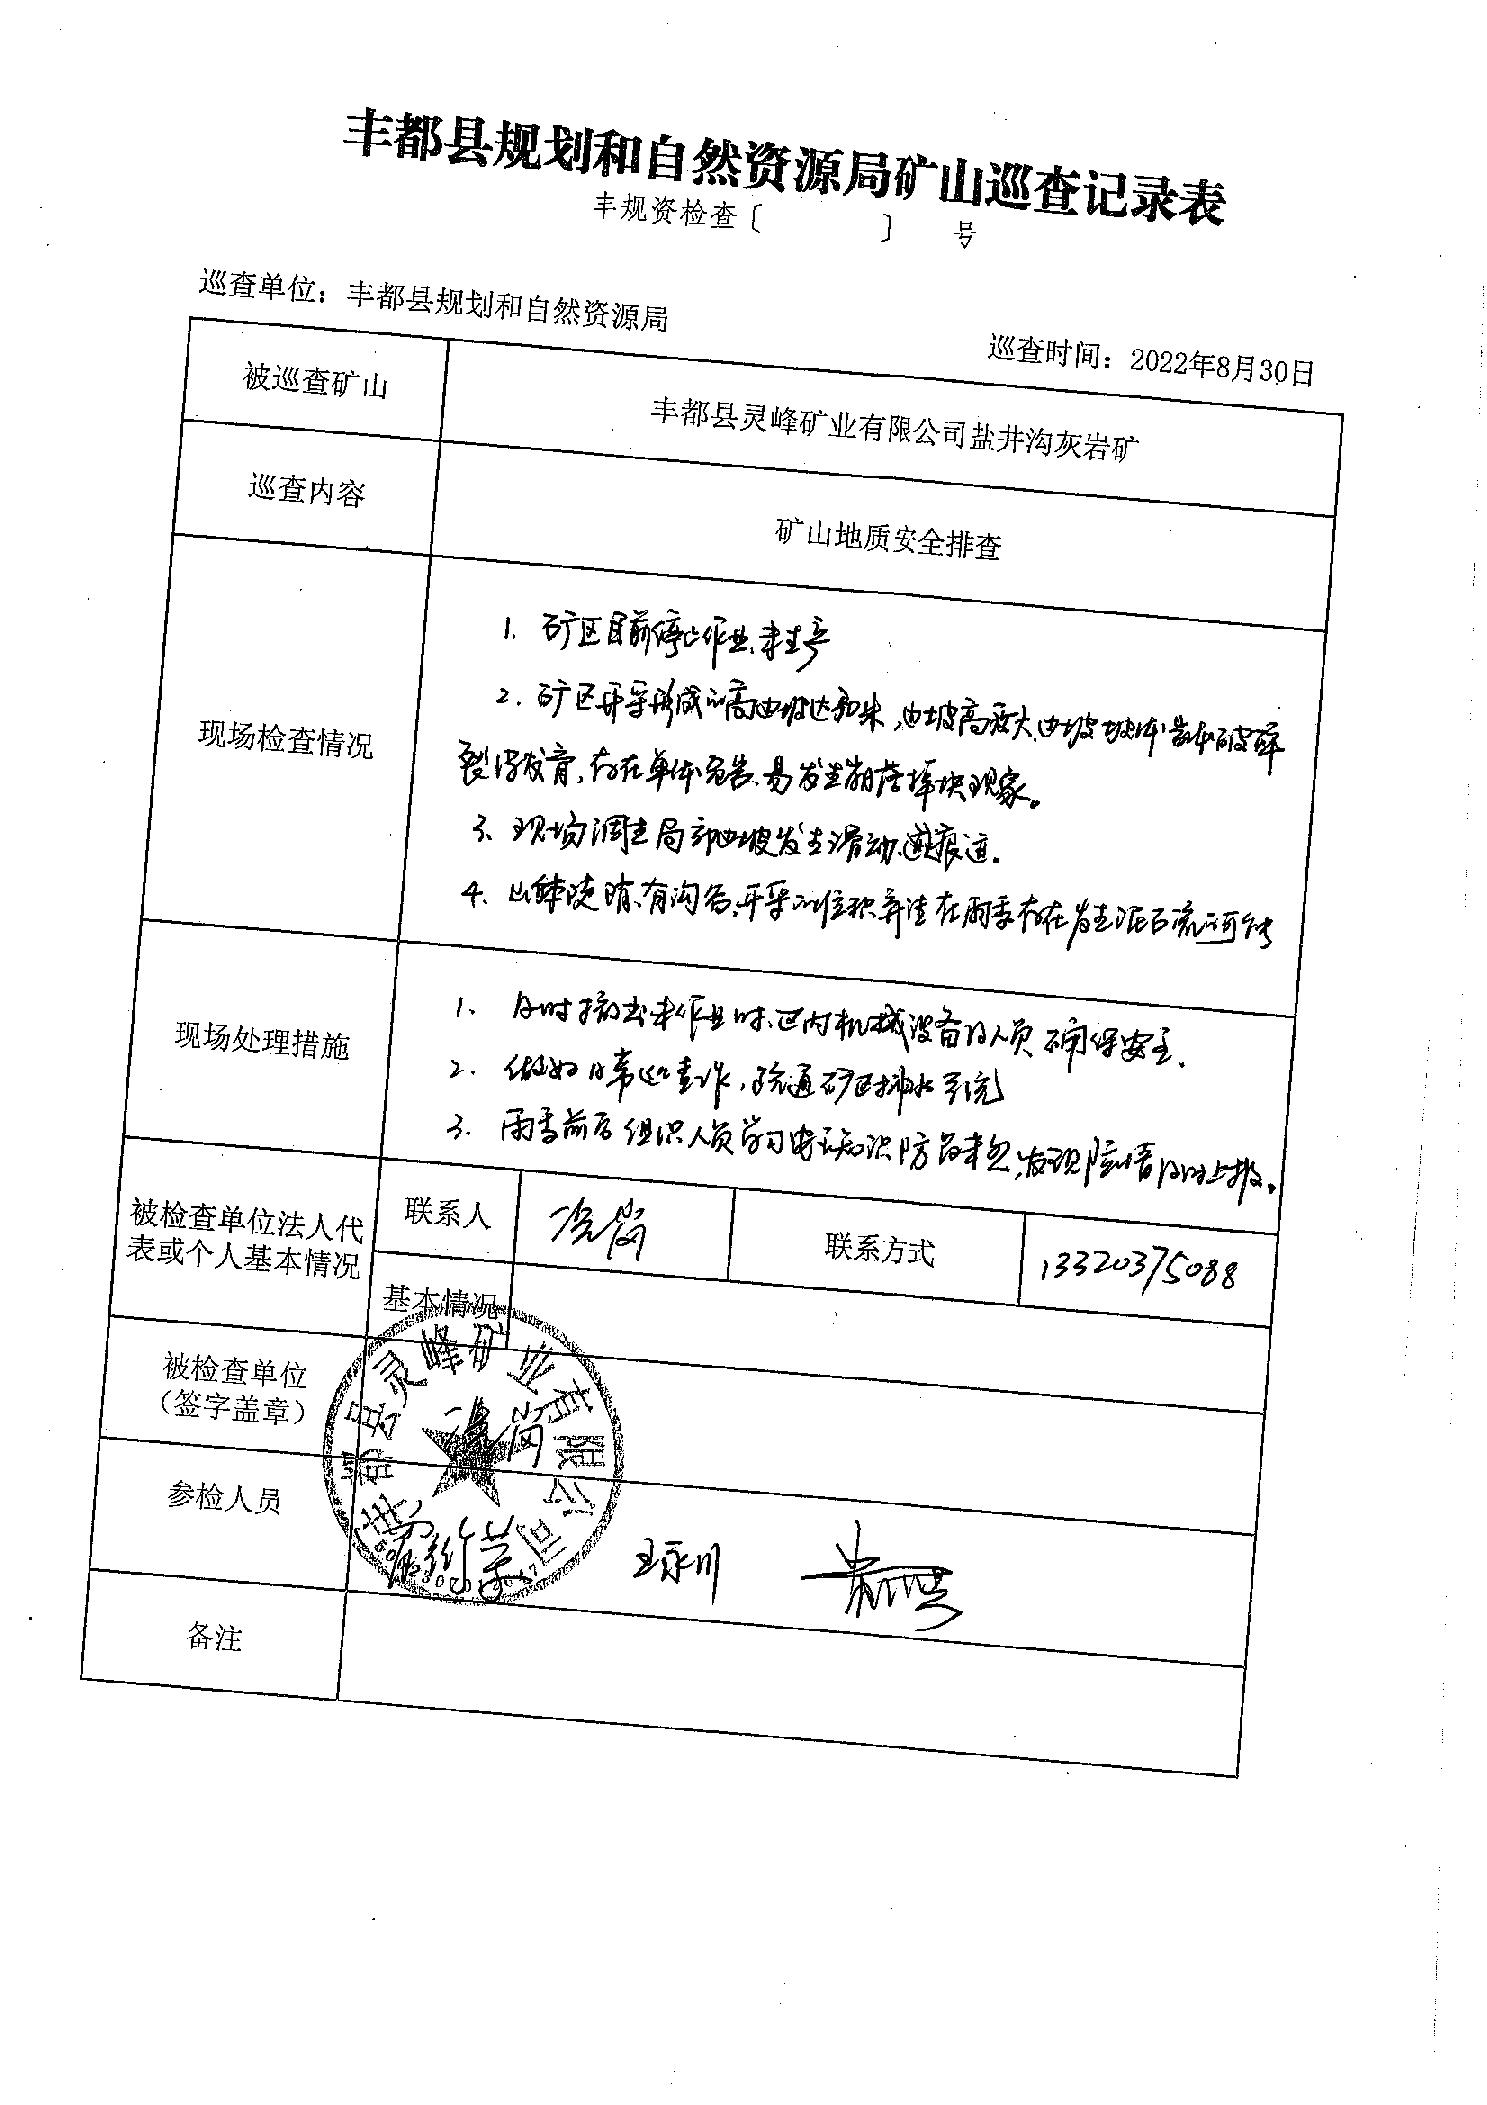 丰都县规划和自然资源局矿山巡查记录表
丰规资检查〔 〕 号
巡查单位：丰都县规划和自然资源局
巡查时间：2022年8月30日
被巡查矿山 丰都县灵峰矿业有限公司盐井沟灰岩矿
巡查内容 矿山地质安全排查
现场检查情况
1. 矿区目前停止作业、未生产
2. 矿区开采形成的高边坡达 米，边坡高度大，边坡坡体 破碎
裂隙发育，存在单体危岩，易发生崩塌掉块现象。
3. 现场 局部边坡发生滑动 痕迹。
4. 山体陡峭，有沟谷，开采的堆积弃渣在雨季存在发生泥石流的可能
现场处理措施
1. 及时撤出未作业时区内机械设备及人员 确保安全.
2. 做好日常巡查工作，疏通矿区排水系统
3. 雨季前后组织人员学习 知识 防 未然，发现险情及时上报。
被检查单位法人代
表或个人基本情况
联系人 岗 联系方式 13320375088
基本情况
被检查单位
（签字盖章）
丰都县灵峰矿业有限公司
参检人员 王永川
备注